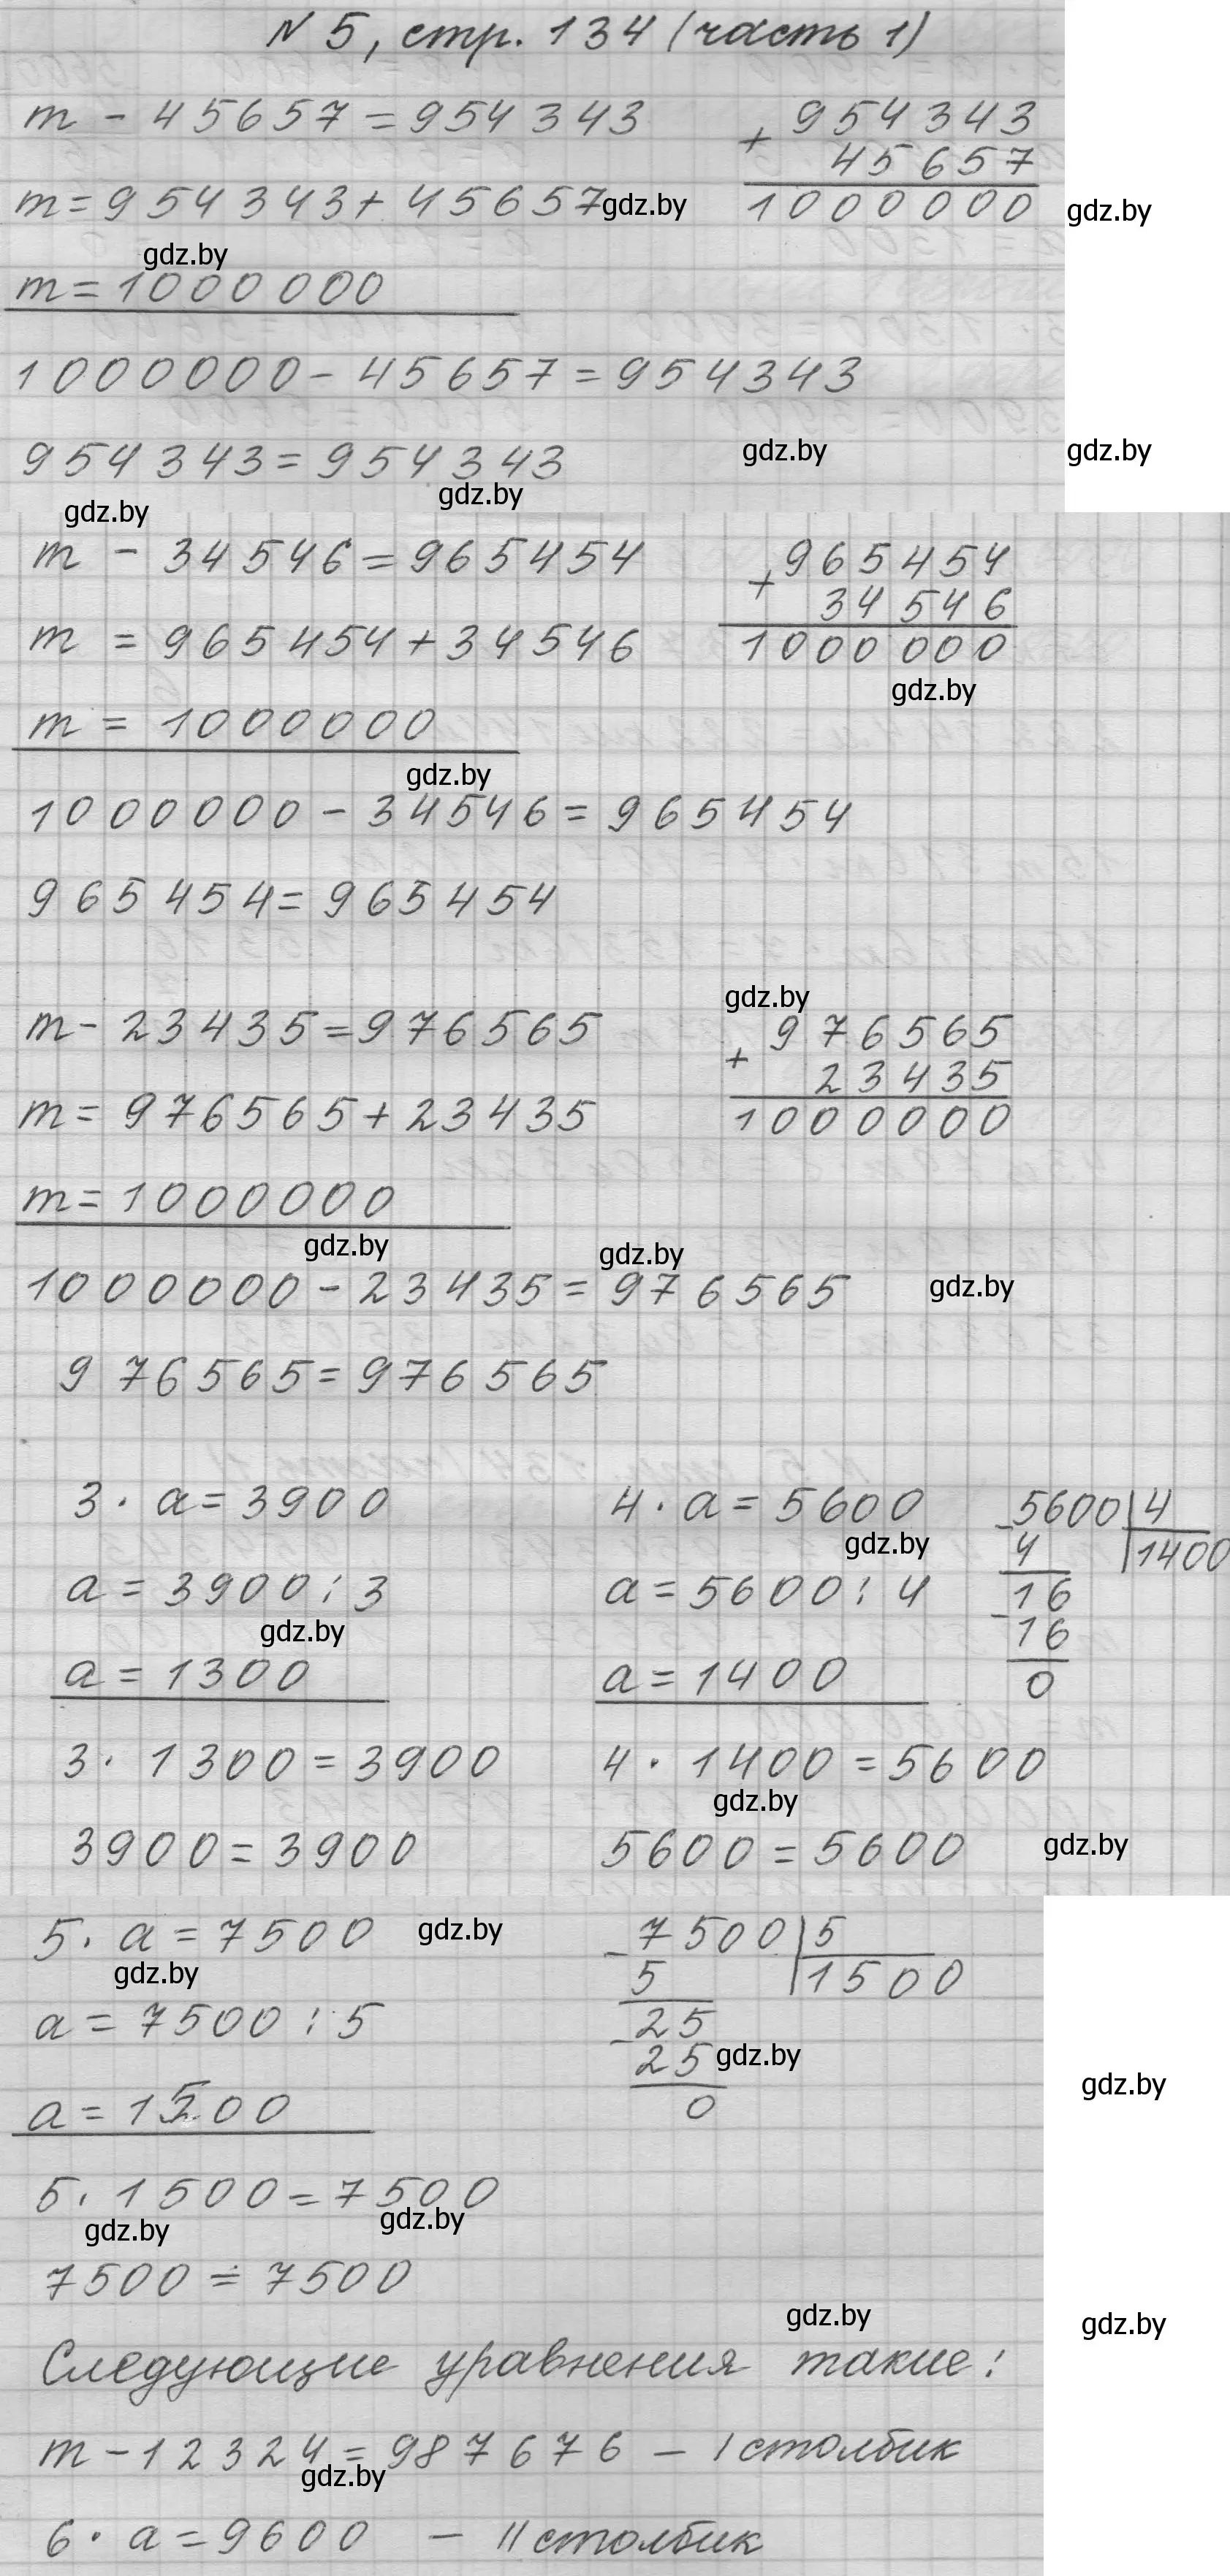 N 5, стр. 134 (часть 1)
m - 45657 = 954343
+ 954343
45657
1000000
m = 954343 + 45657
gdz.by
gdz.by
gdz.by
m = 1000000
1000000 - 45657 = 954343
954343 = 954343
gdz.by
gdz.by
gdz.by
gdz.by
m - 34546 = 965454
+ 965454
34546
1000000
m = 965454 + 34546
gdz.by
m = 1000000
gdz.by
1000000 - 34546 = 965454
965454 = 965454
gdz.by
m - 23435 = 976565
+ 976565
23435
1000000
m = 976565 + 23435
m = 1000000
gdz.by
gdz.by
1000000 - 23435 = 976565
gdz.by
976565 = 976565
3 · a = 3900
a = 3900 : 3
gdz.by
a = 1300
3 · 1300 = 3900
3900 = 3900
4 · a = 5600
gdz.by
a = 5600 : 4
a = 1400
4 · 1400 = 5600
gdz.by
5600 = 5600
gdz.by
- 5600 | 4
4 | 1400
- 16
16
0
5 · a = 7500
gdz.by
gdz.by
a = 7500 : 5
a = 1500
- 7500 | 5
5 | 1500
- 25
25
gdz.by
0
gdz.by
5 · 1500 = 7500
gdz.by
gdz.by
7500 = 7500
gdz.by
gdz.by
Следующие уравнения такие:
m - 12324 = 987676 - I столбик
gdz.by
6 · a = 9600 - II столбик